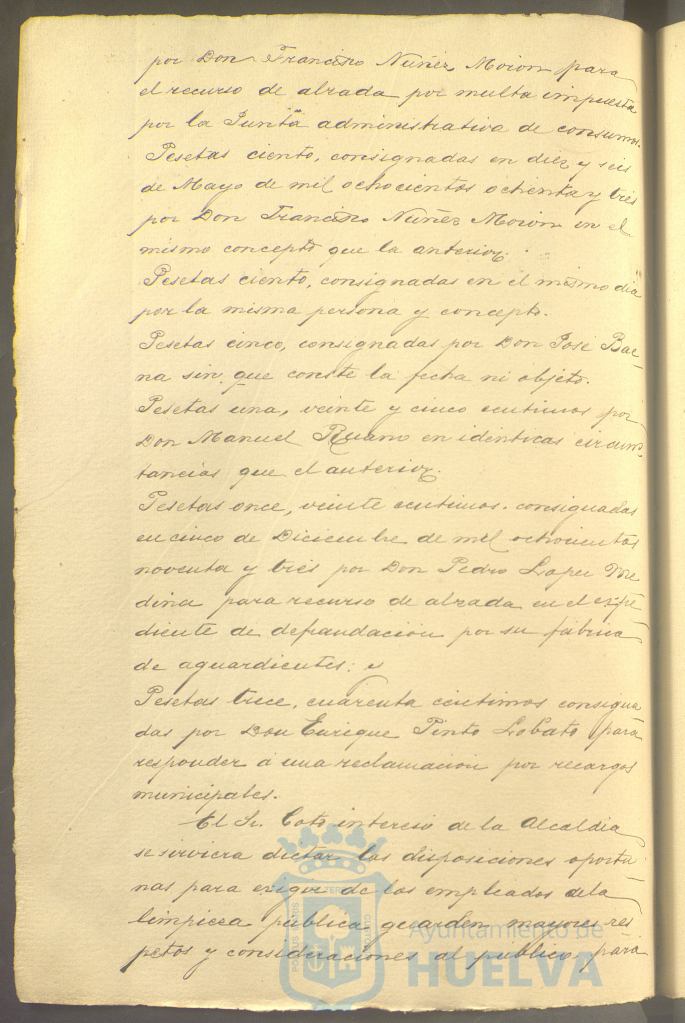 por Don Francisco Núñez Moron para
el recurso de alzada por multa impuesta
por la Junta administrativa de consumos.
Pesetas ciento, consignadas en diez y seis
de Mayo de mil ochocientos ochenta y tres
por Don Francisco Núñez Moron en el
mismo concepto que la anterior.
Pesetas ciento, consignadas en el mismo dia
por la misma persona y concepto.
Pesetas cinco, consignadas por Don José Bae-
na sin que conste la fecha ni objeto.
Pesetas una, veinte y cinco centimos por
Don Manuel Ruano en identicas circuns-
tancias que el anterior.
Pesetas once, veinte centimos. consignadas
en cinco de Diciembre de mil ochocientos
noventa y tres por Don Pedro Lopez Me
dina para recurso de alzada en el espe
diente de defraudación por su fábrica
de aguardientes; y
Pesetas trece, cuarenta centimos consigna
das por Don Enrique Pinto Lobato para
responder á una reclamación por recargos
municipales.
El Sr. Coto intereso de la Alcaldia
se sirviera dictar las disposiciones oportu-
nas para exigir de los empleados de la
limpieza publica guarden mayores res
petos y consideraciones al publico, para
Ayuntamiento de
HUELVA